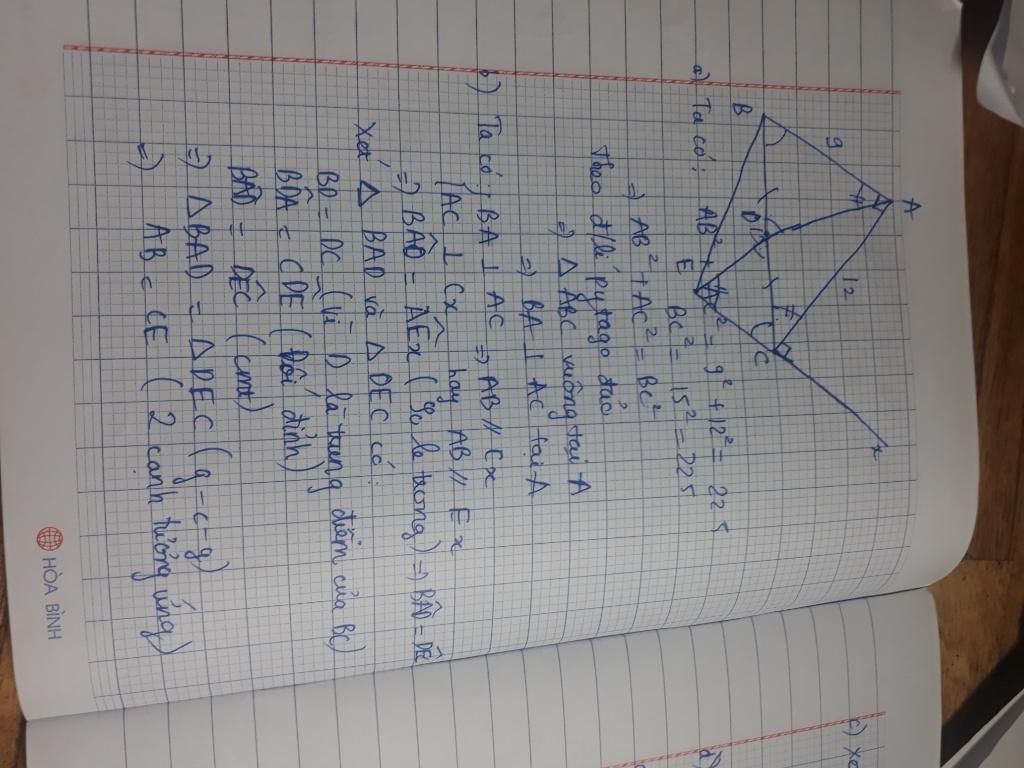 A
B
9
12
D
E
C
x
a) Ta có: AB² + AC² = 9² + 12² = 225
BC² = 15² = 225
=) AB² + AC² = BC²
Theo đ/lí pytago đảo
=) Δ ABC vuông tại A
=) BA ⊥ AC tại A
b) Ta có: BA ⊥ AC =) AB // Cx
{AC ⊥ Cx hay AB // Ex
=) BÂD = AÊx (So le trong) =) BÂD = DÊ
Xét Δ BAD và Δ DEC có:
BD = DC (Vì D là trung điểm của BC)
BD̂A = CDE (Đối đỉnh)
BÂD = DÊC (cmt)
=) Δ BAD = Δ DEC (g-c-g)
=) AB = CE (2 cạnh tương ứng)
HÒA BÌNH
c) Xé
d)